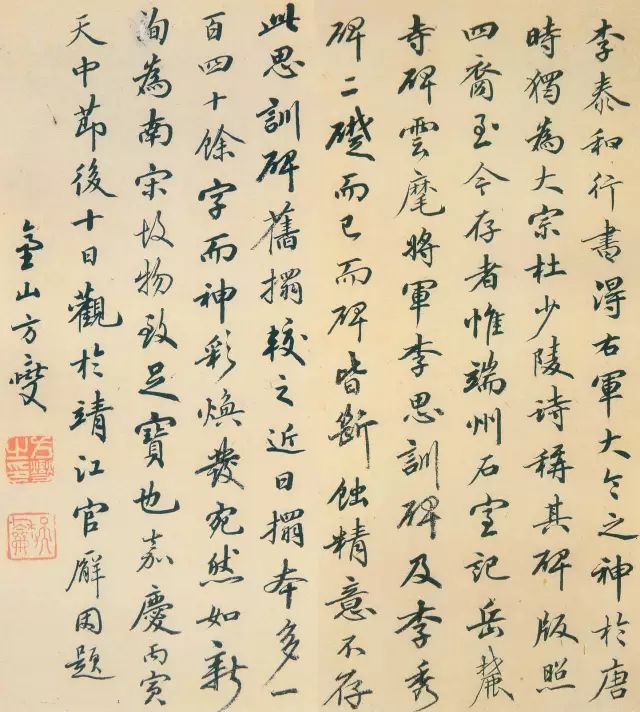 李泰和行書得右軍大令之神於唐
時獨為大宗杜少陵詩稱其碑版照
四裔至今存者惟端州石室記岳麓
寺碑雲麾將軍李思訓碑及李秀
碑二礎而已而碑皆斷蝕精意不存
此思訓碑舊搨較之近日搨本多一
百四十餘字而神彩煥發宛然如新
洵為南宋故物致足寶也嘉慶丙寅
天中節後十日觀於靖江官廨因題
寶山方燮